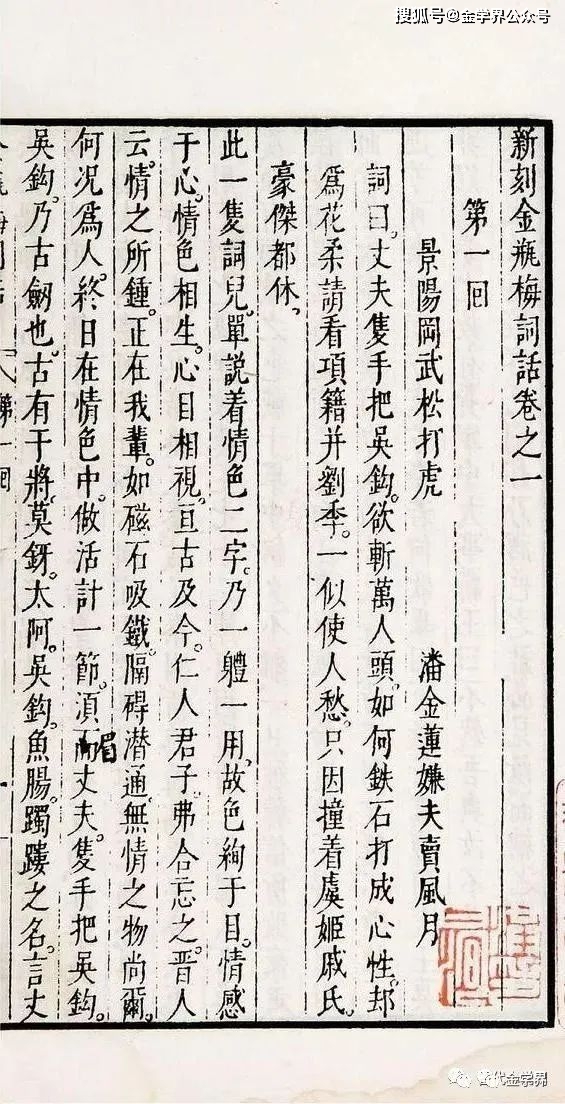 搜狐号@金学界公众号
新刻金瓶梅詞話卷之一
第一回
景陽岡武松打虎　潘金蓮嫌夫賣風月
詞曰。丈夫隻手把吳鈎。欲斬萬人頭。如何鉄石打成心性。却
爲花柔請看項籍并劉季。一似使人愁。只因撞着虞姬戚氏。
豪傑都休。
此一隻詞兒。單説着情色二字。乃一體一用。故色絢于目。情感
于心。情色相生。心目相視。亘古及今。仁人君子。弗合忘之。晋人
云。情之所鍾。正在我輩。如磁石吸鐵。隔碍潜通。無情之物尚爾。
何况爲人。終日在情色中。做活計一節。湏而眉丈夫。隻手把吳鈎。
吳鈎。乃古劔也。古有干將。莫釾。太阿。吳鈎。魚腸。躅䠼之名。言丈
第一回
代金学界